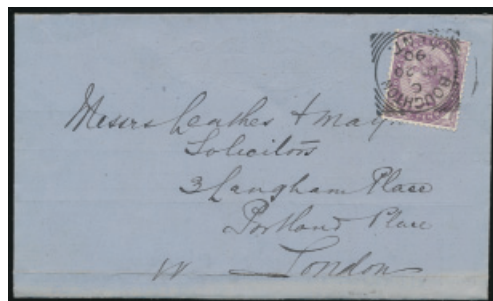 BOUGHTON
90
Messrs Leathes & May
Solicitors
3 Langham Place
Portland Place
W London